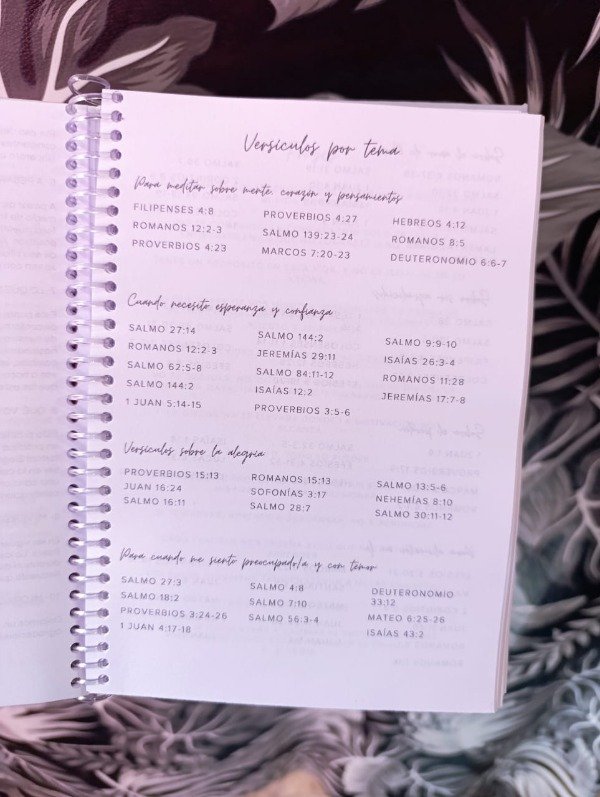 Versículos por tema
Para meditar sobre mente, corazón y pensamientos
FILIPENSES 4:8 PROVERBIOS 4:27 HEBREOS 4:12
ROMANOS 12:2-3 SALMO 139:23-24 ROMANOS 8:5
PROVERBIOS 4:23 MARCOS 7:20-23 DEUTERONOMIO 6:6-7
Cuando necesito esperanza y confianza
SALMO 27:14 SALMO 144:2 SALMO 9:9-10
ROMANOS 12:2-3 JEREMÍAS 29:11 ISAÍAS 26:3-4
SALMO 62:5-8 SALMO 84:11-12 ROMANOS 11:28
SALMO 144:2 ISAÍAS 12:2 JEREMÍAS 17:7-8
1 JUAN 5:14-15 PROVERBIOS 3:5-6
Versículos sobre la alegría
PROVERBIOS 15:13 ROMANOS 15:13 SALMO 13:5-6
JUAN 16:24 SOFONÍAS 3:17 NEHEMÍAS 8:10
SALMO 16:11 SALMO 28:7 SALMO 30:11-12
Para cuando me siento preocupado/a y con temor
SALMO 27:3 SALMO 4:8 DEUTERONOMIO
33:12
SALMO 18:2 SALMO 7:10
PROVERBIOS 3:24-26 SALMO 56:3-4 MATEO 6:25-26
1 JUAN 4:17-18 ISAÍAS 43:2